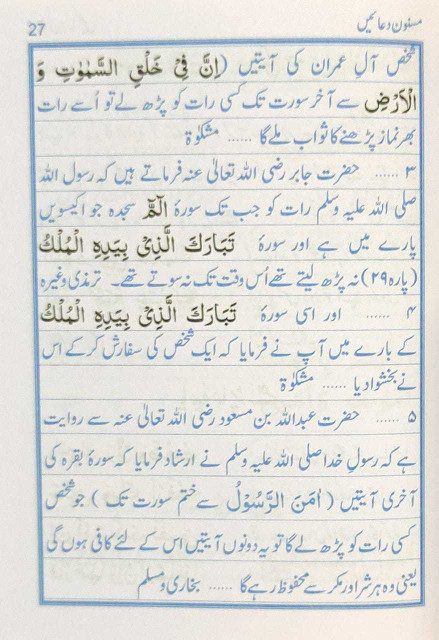 مسنون دعائیں
27
شخص آلِ عمران کی آیتیں (اِنَّ فِیْ خَلْقِ السَّمٰوٰتِ وَ
الْاَرْضِ سے آخر سورت تک کسی رات کو پڑھ لے تو اُسے رات
بھر نماز پڑھنے کا ثواب ملے گا ...... مشکوٰۃ
۳ ...... حضرت جابر رضی اللہ تعالیٰ عنہ فرماتے ہیں کہ رسول اللہ
صلی اللہ علیہ وسلم رات کو جب تک سورۂ الٓمّٓ سجدہ جو اکیسویں
پارے میں ہے اور سورۂ تَبَارَکَ الَّذِیْ بِیَدِہِ الْمُلْکُ
(پارہ ۲۹) نہ پڑھ لیتے تھے اُس وقت تک نہ سوتے تھے۔ ترمذی وغیرہ
۴ ...... اور اسی سورۂ تَبَارَکَ الَّذِیْ بِیَدِہِ الْمُلْکُ
کے بارے میں آپ نے فرمایا کہ ایک شخص کی سفارش کرکے اس
نے بخشوا دیا ...... مشکوٰۃ
۵ ...... حضرت عبداللہ بن مسعود رضی اللہ تعالیٰ عنہ سے روایت
ہے کہ رسولِ خدا صلی اللہ علیہ وسلم نے ارشاد فرمایا کہ سورۂ بقرہ کی
آخری آیتیں (اٰمَنَ الرَّسُوْلُ سے ختم سورت تک) جو شخص
کسی رات کو پڑھ لے گا تو یہ دونوں آیتیں اس کے لئے کافی ہوں گی
یعنی وہ ہر شر اور مکر سے محفوظ رہے گا ...... بخاری و مسلم